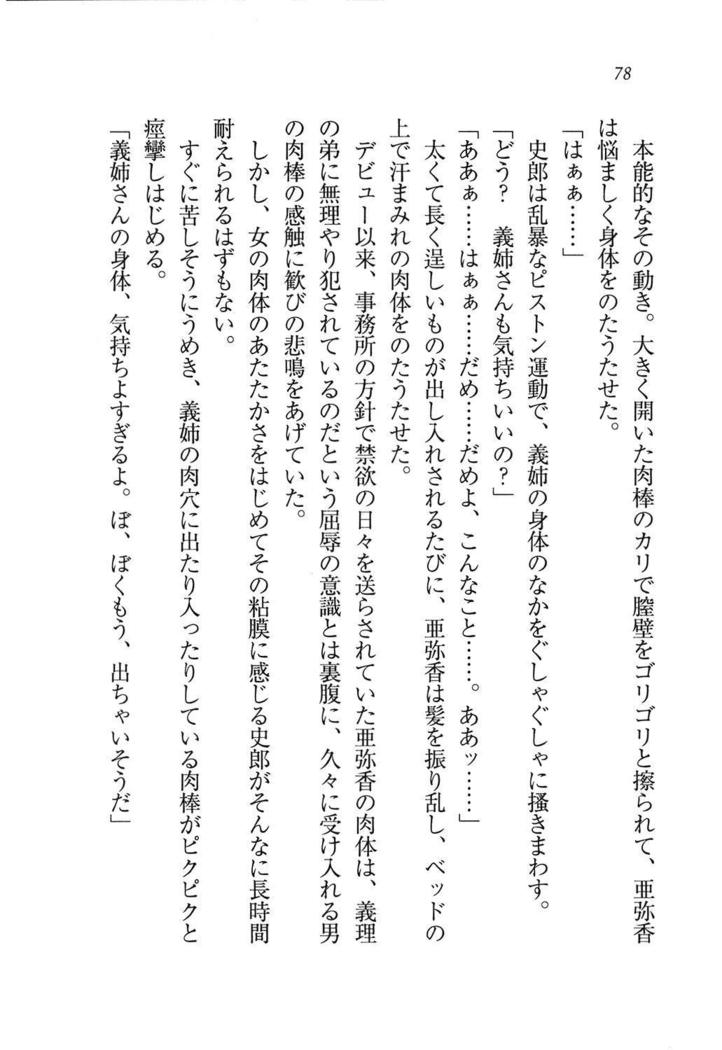 78
本能的なその動き。大きく開いた肉棒のカリで膣壁をゴリゴリと擦られて、亜弥香
は悩ましく身体をのたうたせた。
「はぁぁ……」
史郎は乱暴なピストン運動で、義姉の身体のなかをぐしゃぐしゃに掻きまわす。
「どう?　義姉さんも気持ちいいの?」
「ああぁ……はぁぁ……だめ……だめよ、こんなこと……。ああッ……」
太くて長く逞しいものが出し入れされるたびに、亜弥香は髪を振り乱し、ベッドの
上で汗まみれの肉体をのたうたせた。
デビュー以来、事務所の方針で禁欲の日々を送らされていた亜弥香の肉体は、義理
の弟に無理やり犯されているのだという屈辱の意識とは裏腹に、久々に受け入れる男
の肉棒の感触に歓びの悲鳴をあげていた。
しかし、女の肉体のあたたかさをはじめてその粘膜に感じる史郎がそんなに長時間
耐えられるはずもない。
すぐに苦しそうにうめき、義姉の肉穴に出たり入ったりしている肉棒がピクピクと
痙攣しはじめる。
「義姉さんの身体、気持ちよすぎるよ。ぼ、ぼくもう、出ちゃいそうだ」